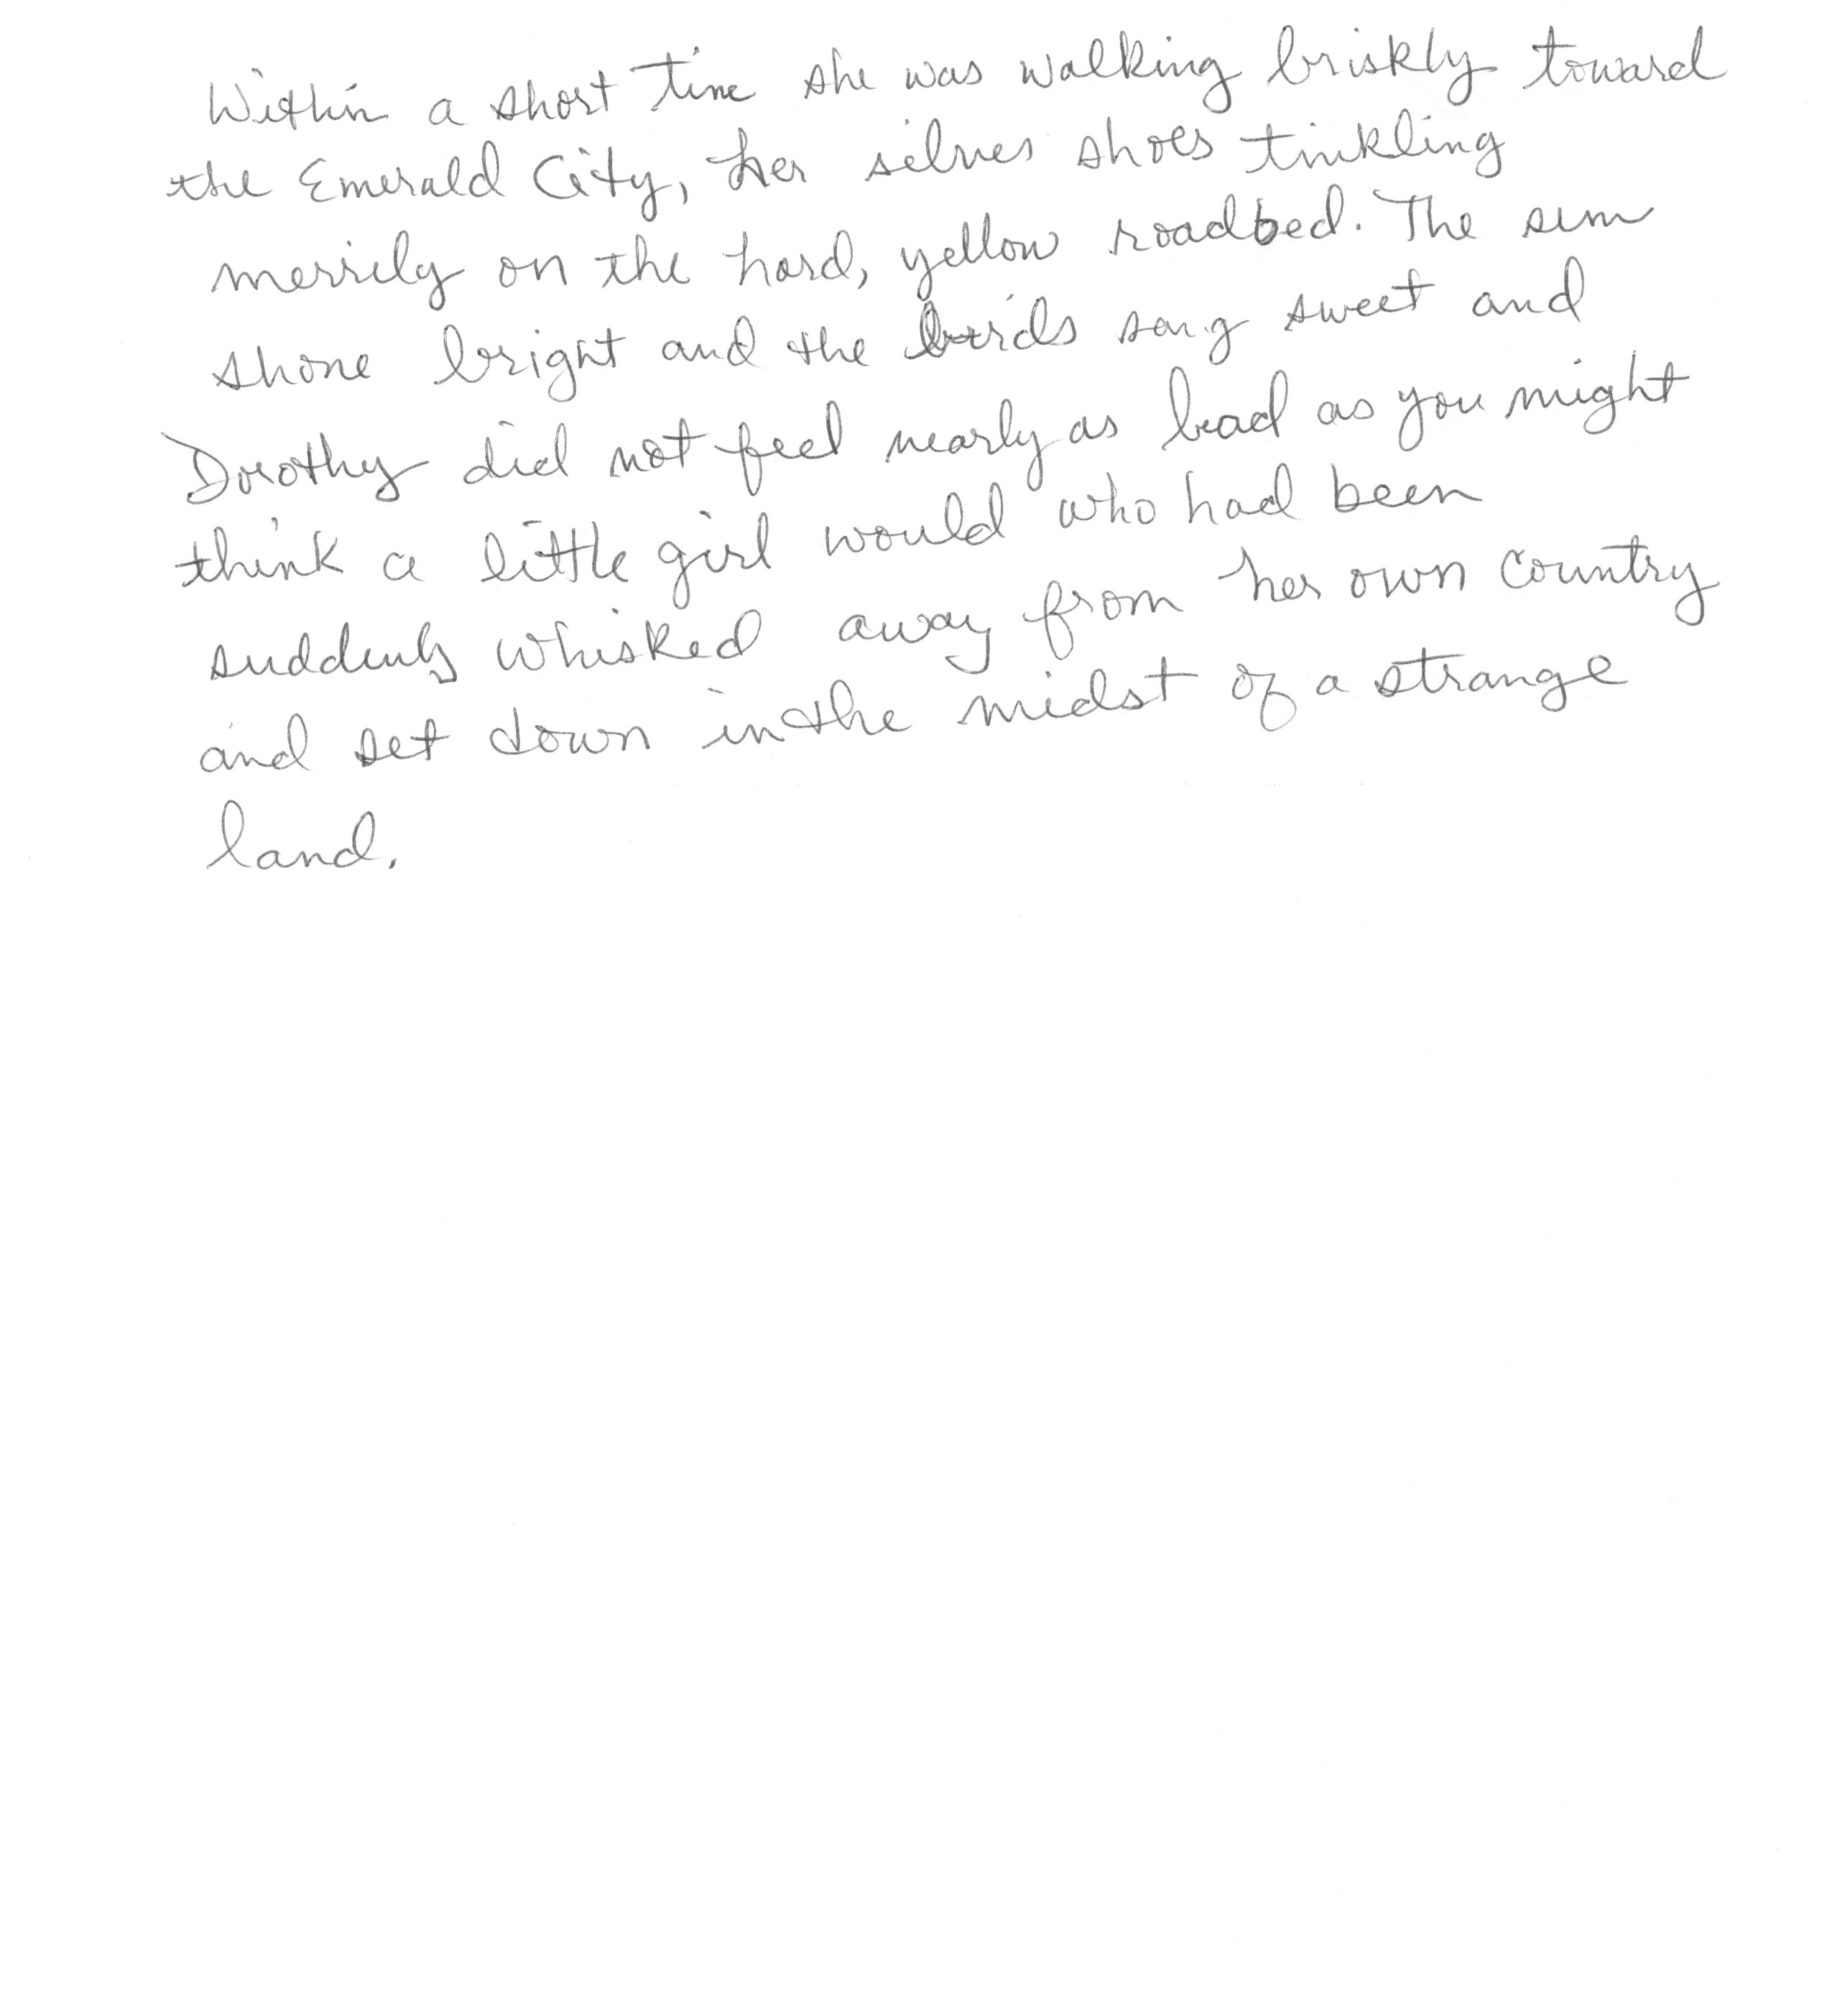 Within a short time she was walking briskly toward
the Emerald City, her silver shoes tinkling
merrily on the hard, yellow roadbed. The sun
shone bright and the birds sang sweet and
Dorothy did not feel nearly as bad as you might
think a little girl would who had been
suddenly whisked away from her own country
and set down in the midst of a strange
land.